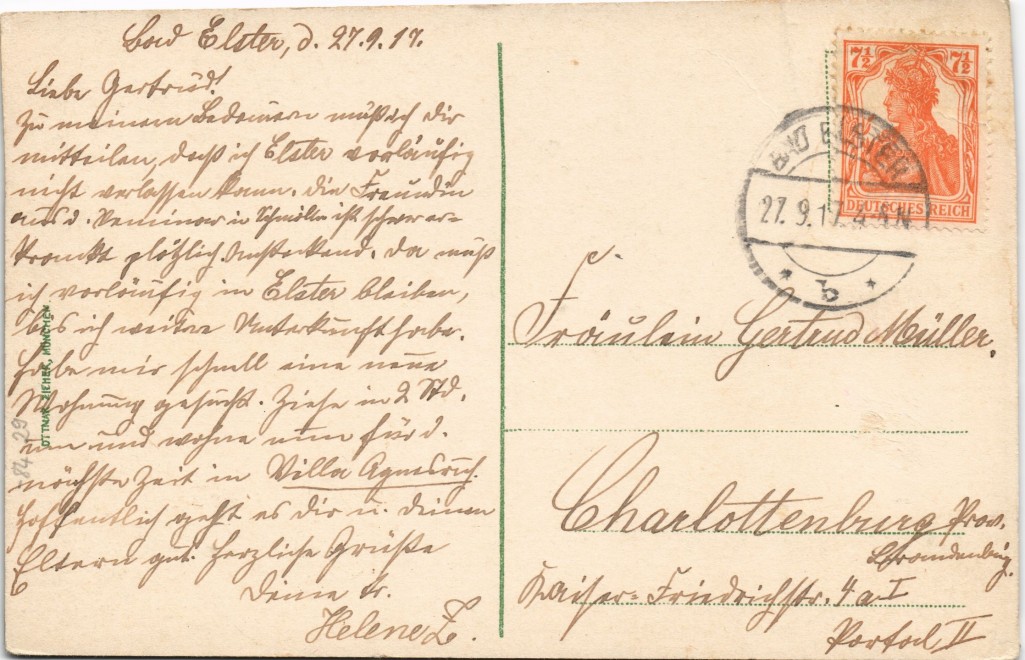 Bad Elster, d. 27.9.17.
Liebe Gertrud!
Zu meinem Bedauern muß ich dir
mitteilen, daß ich Elster vorläufig
nicht verlassen kann. die Freundin
aus d. Seminar in Schmölln ist schwer er-
krankt plötzlich. Ansteckend. da muß
ich vorläufig in Elster bleiben,
bis ich weitere Unterkunft habe.
Habe mir schnell eine neue
Wohnung gesucht. Ziehe in 2 Std.
um und wohne nun für d.
nächste Zeit in Villa Agnesruh.
Hoffentlich geht es dir u. deinen
Eltern gut. Herzliche Grüße
Deine tr.
Helene Z.
OTTMAR ZIEHER, MÜNCHEN
84 29
7½ 7½
DEUTSCHES REICH
BAD ELSTER
27. 9. 17. 4-5 N
* b *
Fräulein Gertrud Müller.
Charlottenburg Prov.
Brandenburg.
Kaiser-Friedrichstr. 4a I
Portal II